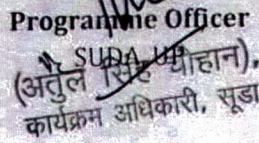 Programme Officer
SUDA, UP
(अतुल सिंह चौहान),
कार्यक्रम अधिकारी, सूडा